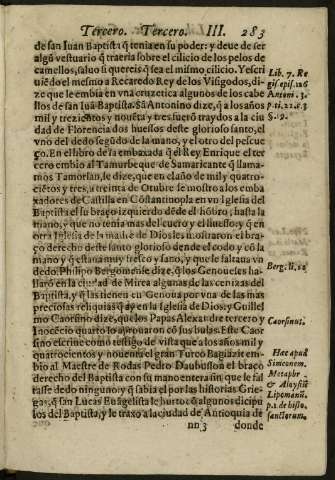 Tercero. Tercero. III. 283
de san Iuan Baptista q̃ tenia en su poder: y deue de ser
algũ vestuario q̃ traeria sobre el cilicio de los pelos de
camellos, saluo si quereis q̃ sea el mismo cilicio. Y escri
uiẽdo el mesmo a Recaredo Rey de los Visigodos, di-
ze que le embia en vna cruzetica algunos de los cabe
llos de san Iuã Baptista. Sã Antonino dize, q̃ a los años
mil y trezientos y nouẽta y tres fuerõ traydos a la ciu
dad de Florencia dos huessos deste glorioso santo, el
vno del dedo segũdo de la mano, y el otro del pescue
ço. En el libro de la embaxada q̃ el Rey Enrique el ter
cero embio al Tamurbeque de Samaricante q̃ llama-
mos Tamorlan, le dize, que en el año de mil y quatro-
ciẽtos y tres, a treinta de Otubre se mostro a los emba
xadores de Castilla en Cõstantinopla en vn Iglesia del
Baptista el su braço izquierdo dẽsde el hõbro, hasta la
mano, y que no tenia mas del cuero y el huesso: y q̃ en
otra Iglesia de la madre de Dios les mostraron el bra-
ço derecho deste santo glorioso dende el codo y cõ la
mano y q̃ estaua muy fresco y sano, y que le faltaua vn
dedo. Philipo Bergomense dize, q̃ los Genoueses ha-
llarõ en la ciudad de Mirea algunas de las cenizas del
Baptista, y q̃ las tienen en Genoua por vna de las mas
preciosas reliquias q̃ ay en la Iglesia de Dios: y Guillel
mo Caorsino dize, que los Papas Alexandre tercero y
Inocẽcio quarto lo aprouaron cõ sus bulas. Este Caor
sino escriue como testigo de vista que a los años mil y
quatrocientos y nouenta el gran Turco Bagiazit em-
bio al Maestre de Rodas Pedro Daubusson el braço
derecho del Baptista con su mano entera sin que le fal
tasse dedo ninguno: y q̃ sabia el por las historias Grie-
gas, q̃ san Lucas Euãgelista le hurto cõ algunos dicipu
los del Baptista, y le traxo a la ciudad de Antioquia de
nn 3 donde
Lib. 7. Re
gis epis. 126
Antoni. 3.
p. ti. 22. c. 3
§. 9.
Berg. li. 12
Caorsinus.
Hæc apud
Simeonem.
Metaphr
& Aloysiũ
Lipomanũ.
p. 1. de histo.
sanctorum.